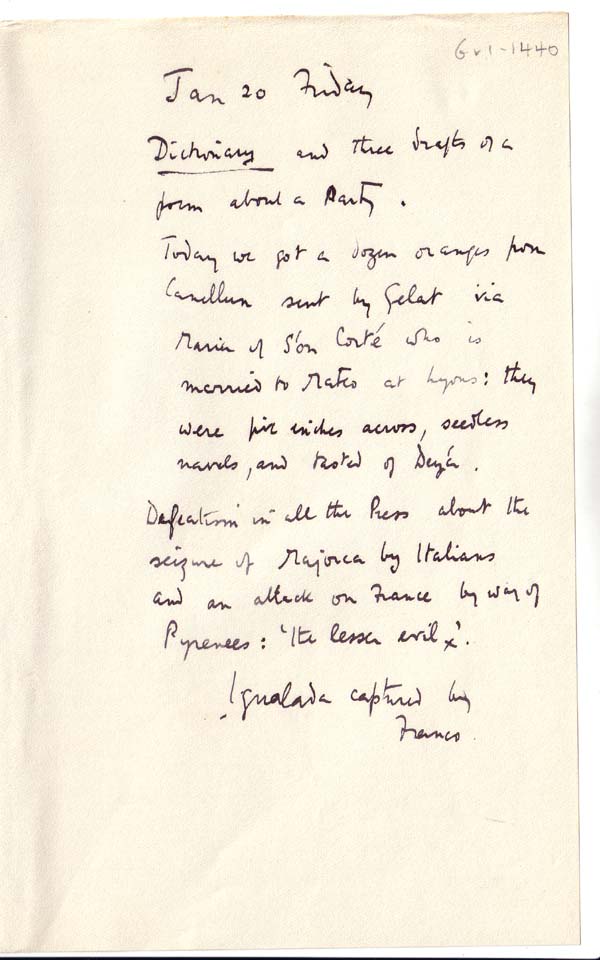 Gv1-1440
Jan 20 Friday
Dictionary and three drafts of a
poem about a Party.
Today we got a dozen oranges from
Canellun sent by Gelat via
Maria of S'on Corté who is
married to Mateo at Lyons: they
were five inches across, seedless
navels, and tasted of Deyá.
Defeatism in all the Press about the
seizure of Majorca by Italians
and an attack on France by way of
Pyrenees: 'the lesser evil'.
Igualada captured by
Franco